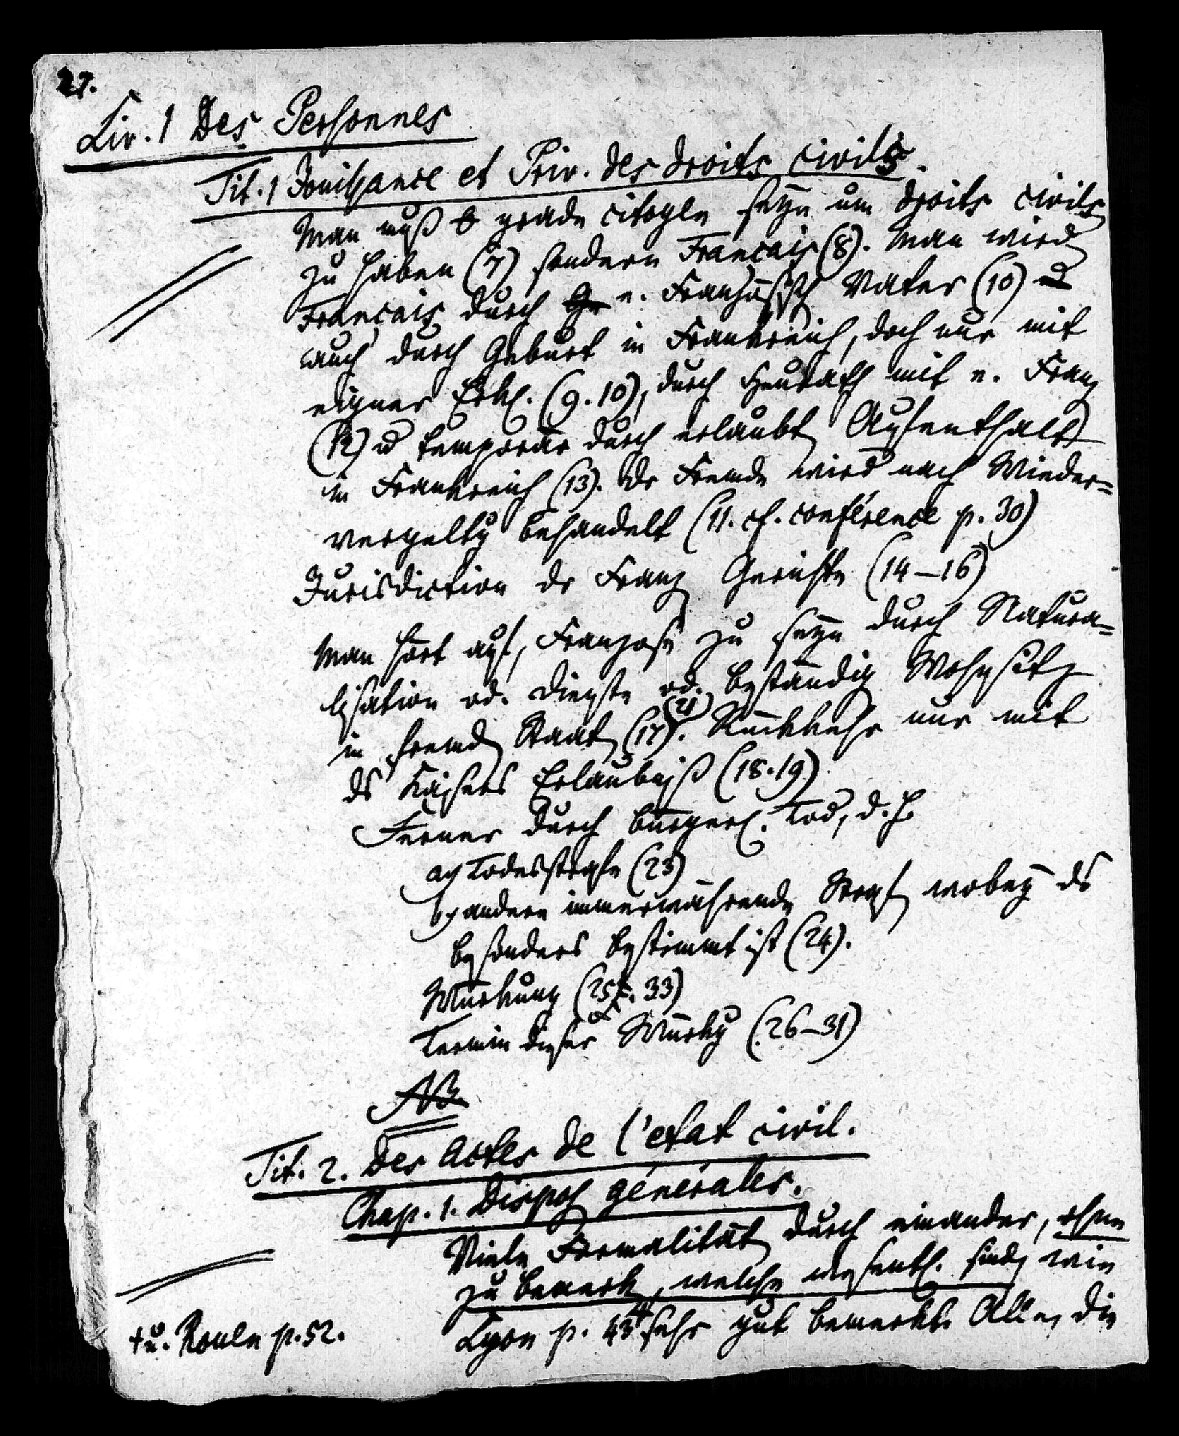 27.
Liv. 1 Des Personnes
Tit. 1 Jouissance et Priv. des droits civils.
Man muß grade citoyen seyn um droits civils
zu haben (7) sondern Francais (8). Man wird
Francais durch e. Französisch Vater (10)
auch durch Geburt in Frankreich, doch nur mit
eigner Erkl. (9. 10), durch Heurath mit e. Franz
(12) u temporär durch erlaubt Aufenthalt
in Frankreich (13). Dr Fremde wird nach Wieder=
vergeltg behandelt (11. cf. conférence p. 30)
Jurisdiction dr Franz Gerichte (14–16)
Man hört auf, Franzose zu seyn durch Natura=
lisation od. Dienste od. beständig Wohnsitz
in fremd Staat (17). (21) Rückkehr nur mit
ds Kaisers Erlaubniß (18. 19)
Ferner durch bürgerl. Tod, d. h.
a) Todesstrafe (23)
b) andere immerwährende Straf wobey ds
besonders bestimmt ist (24).
Würkung (25. 33)
Termin dieser Würkg (26–31)
NB
Tit. 2. Des Actes de l'etat civil.
Chap. 1. Dispos générales.
Viele Formalität durch einander, ohne
zu bemerk, welche wesentl. sind, wie
Lyon p. 43 + sehr gut bemerkt. Alle, die
+ u. Rouen p. 52.